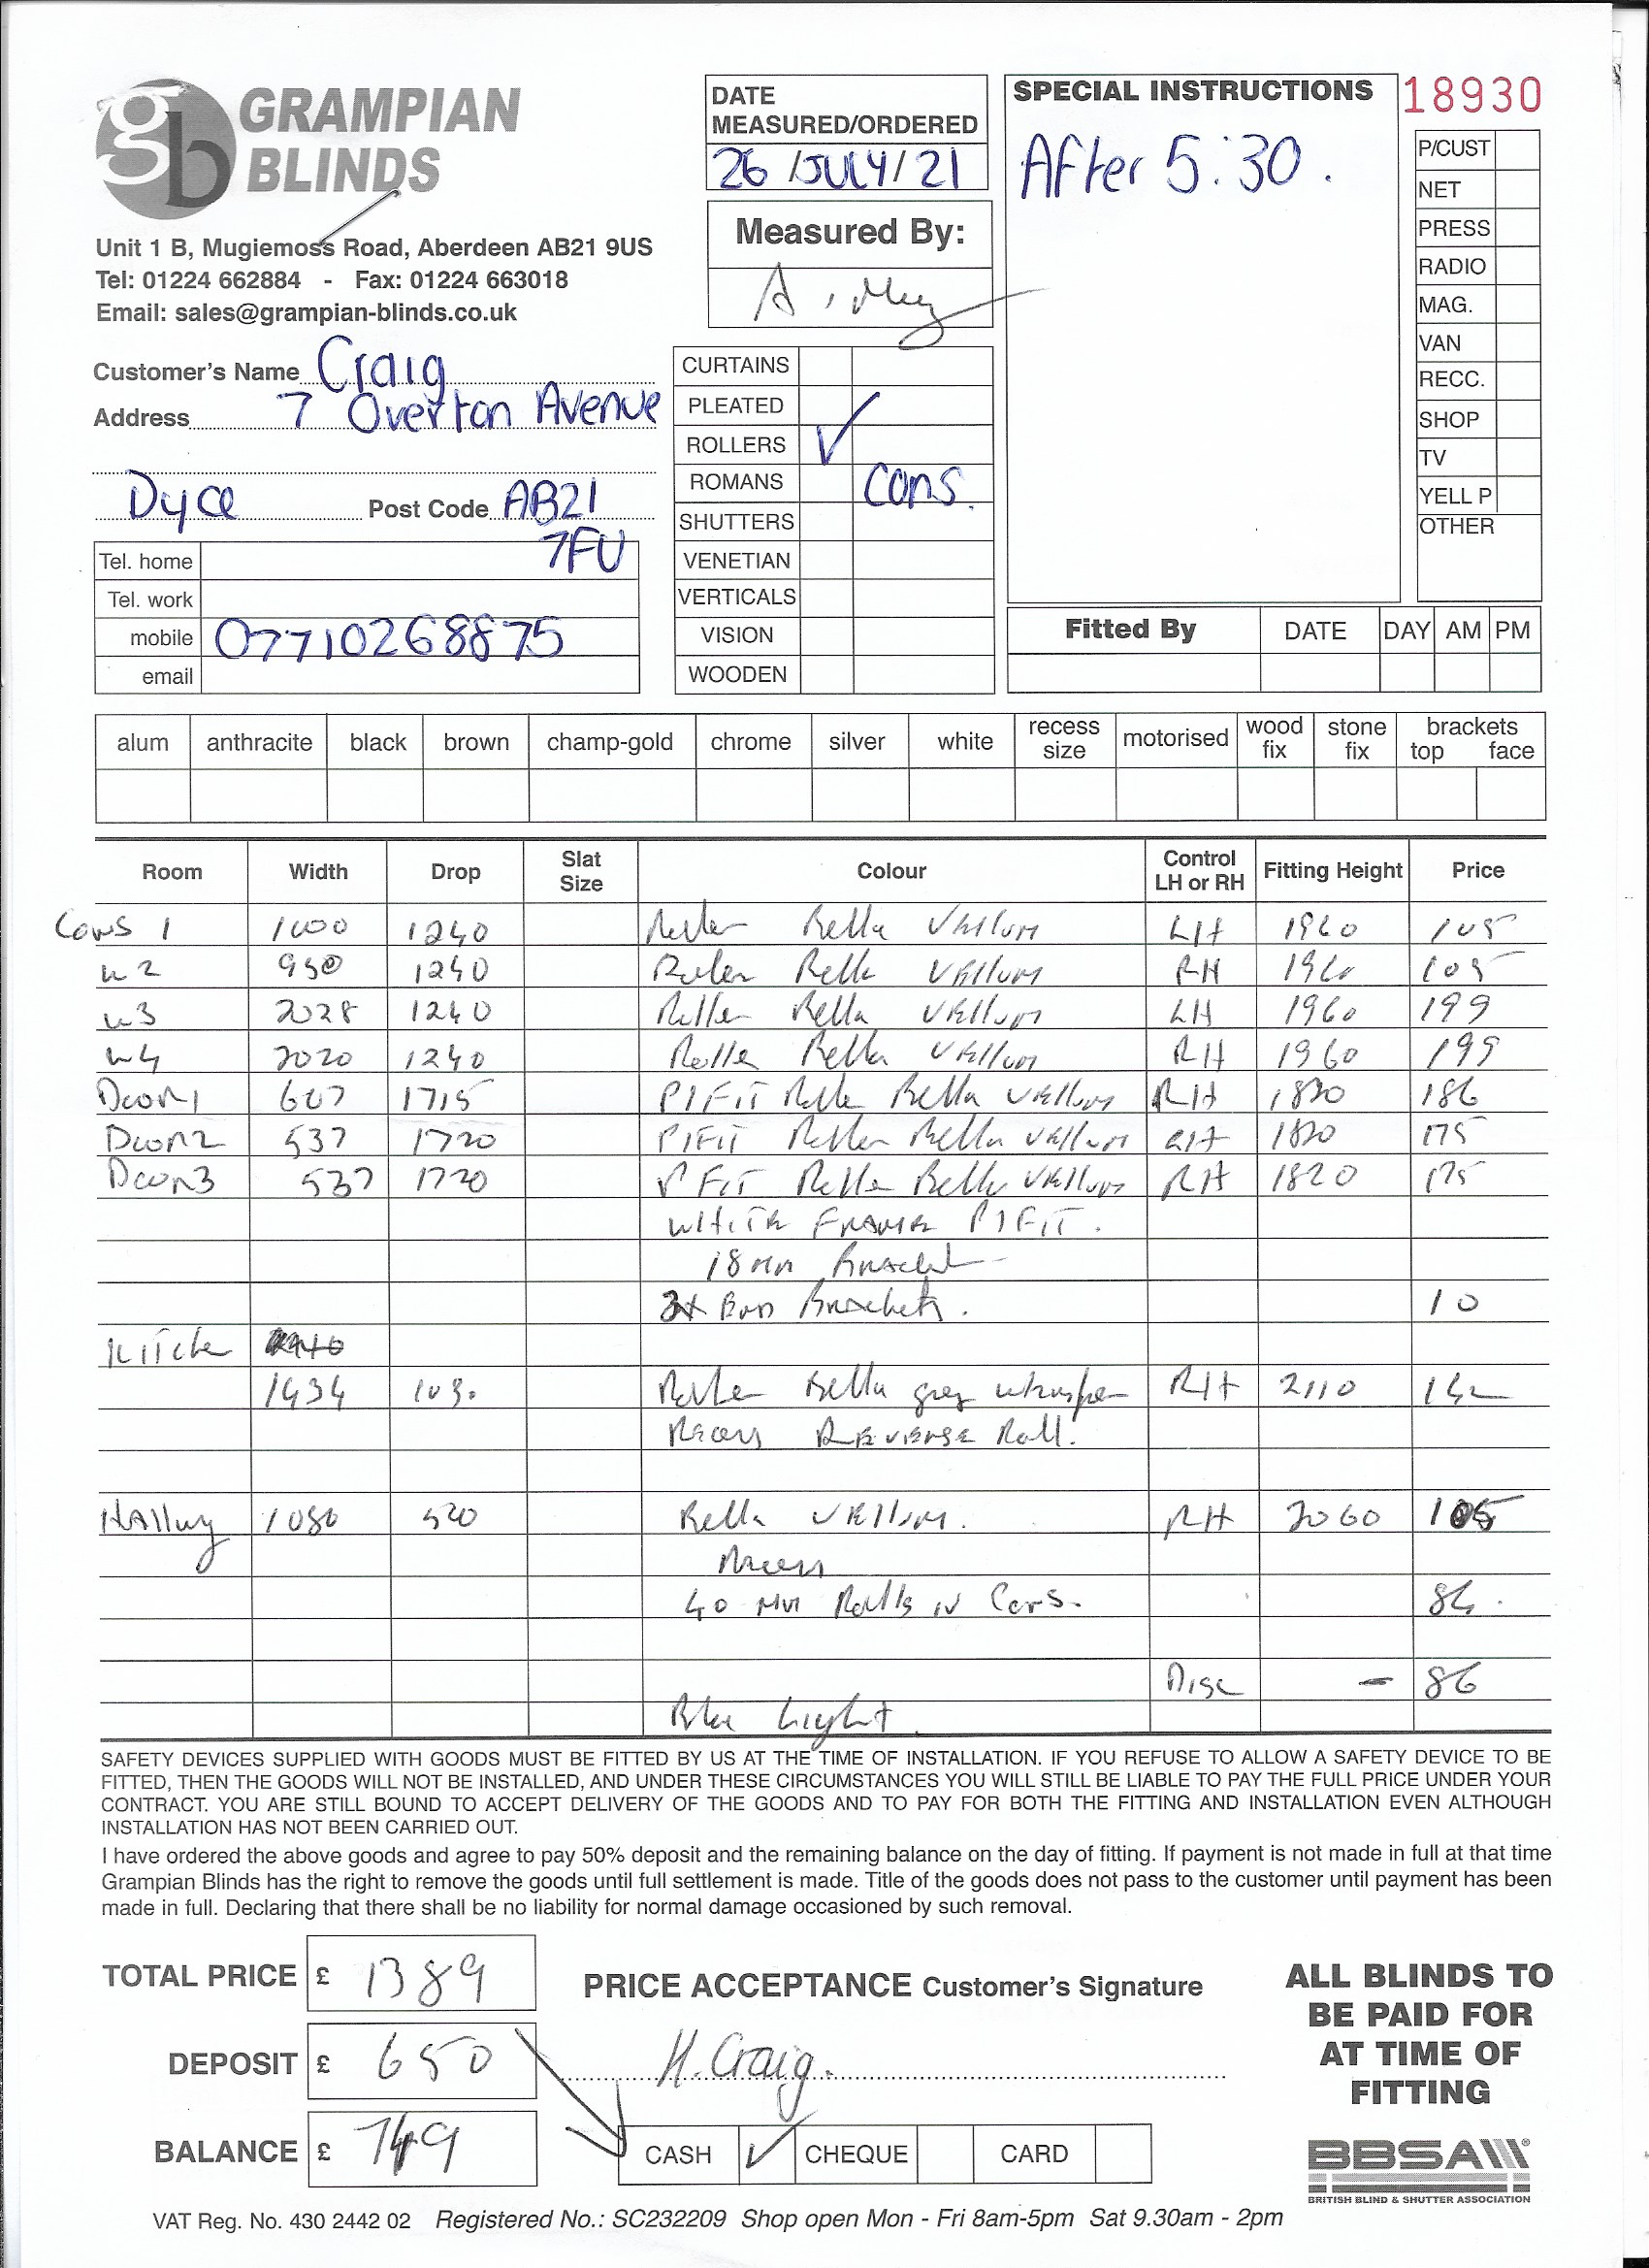 gb GRAMPIAN BLINDS
Unit 1 B, Mugiemoss Road, Aberdeen AB21 9US
Tel: 01224 662884 - Fax: 01224 663018
Email: sales@grampian-blinds.co.uk
DATE MEASURED/ORDERED
26/JULY/21
Measured By:
SPECIAL INSTRUCTIONS
After 5:30.
18930
P/CUST
NET
PRESS
RADIO
MAG.
VAN
RECC.
SHOP
TV
YELL P
OTHER
Customer's Name Craig
Address 7 Overton Avenue
Dyce Post Code AB21
7FU
Tel. home
Tel. work
mobile 07710268875
email
CURTAINS
PLEATED
ROLLERS ✓
ROMANS cons.
SHUTTERS
VENETIAN
VERTICALS
VISION
WOODEN
Fitted By DATE DAY AM PM
alum anthracite black brown champ-gold chrome silver white recess size motorised wood fix stone fix brackets top face
Room Width Drop Slat Size Colour Control LH or RH Fitting Height Price
Cons 1 1240 Roller Bella Vellum LH 1960 105
2 1240 Roller Bella Vellum RH 105
3 2028 1240 Roller Bella Vellum LH 1960 199
4 2020 1240 Roller Bella Vellum RH 1960 199
Door 1 607 1715 P/FIT Roller Bella Vellum RH 1820 186
Door 2 537 1720 P/FIT Roller Bella Vellum RH 1820 175
Door 3 537 1720 P FIT Roller Bella Vellum RH 1820 175
WHITE FRAME P/FIT.
18mm Bracket
Brackets. 10
Kitchen
1434 1030 Roller Bella grey whisper RH 2110
Recess REVERSE Roll.
Hallway 1080 520 Bella Vellum. RH 2060 105
Recess
40 mm Rolls in Cons. 84.
Disc - 86
Light
SAFETY DEVICES SUPPLIED WITH GOODS MUST BE FITTED BY US AT THE TIME OF INSTALLATION. IF YOU REFUSE TO ALLOW A SAFETY DEVICE TO BE
FITTED, THEN THE GOODS WILL NOT BE INSTALLED, AND UNDER THESE CIRCUMSTANCES YOU WILL STILL BE LIABLE TO PAY THE FULL PRICE UNDER YOUR
CONTRACT. YOU ARE STILL BOUND TO ACCEPT DELIVERY OF THE GOODS AND TO PAY FOR BOTH THE FITTING AND INSTALLATION EVEN ALTHOUGH
INSTALLATION HAS NOT BEEN CARRIED OUT.
I have ordered the above goods and agree to pay 50% deposit and the remaining balance on the day of fitting. If payment is not made in full at that time
Grampian Blinds has the right to remove the goods until full settlement is made. Title of the goods does not pass to the customer until payment has been
made in full. Declaring that there shall be no liability for normal damage occasioned by such removal.
TOTAL PRICE £ 1389
DEPOSIT £ 650
BALANCE £ 749
PRICE ACCEPTANCE Customer's Signature
H. Craig.
CASH ✓ CHEQUE CARD
ALL BLINDS TO
BE PAID FOR
AT TIME OF
FITTING
BBSA
BRITISH BLIND & SHUTTER ASSOCIATION
VAT Reg. No. 430 2442 02 Registered No.: SC232209 Shop open Mon - Fri 8am-5pm Sat 9.30am - 2pm